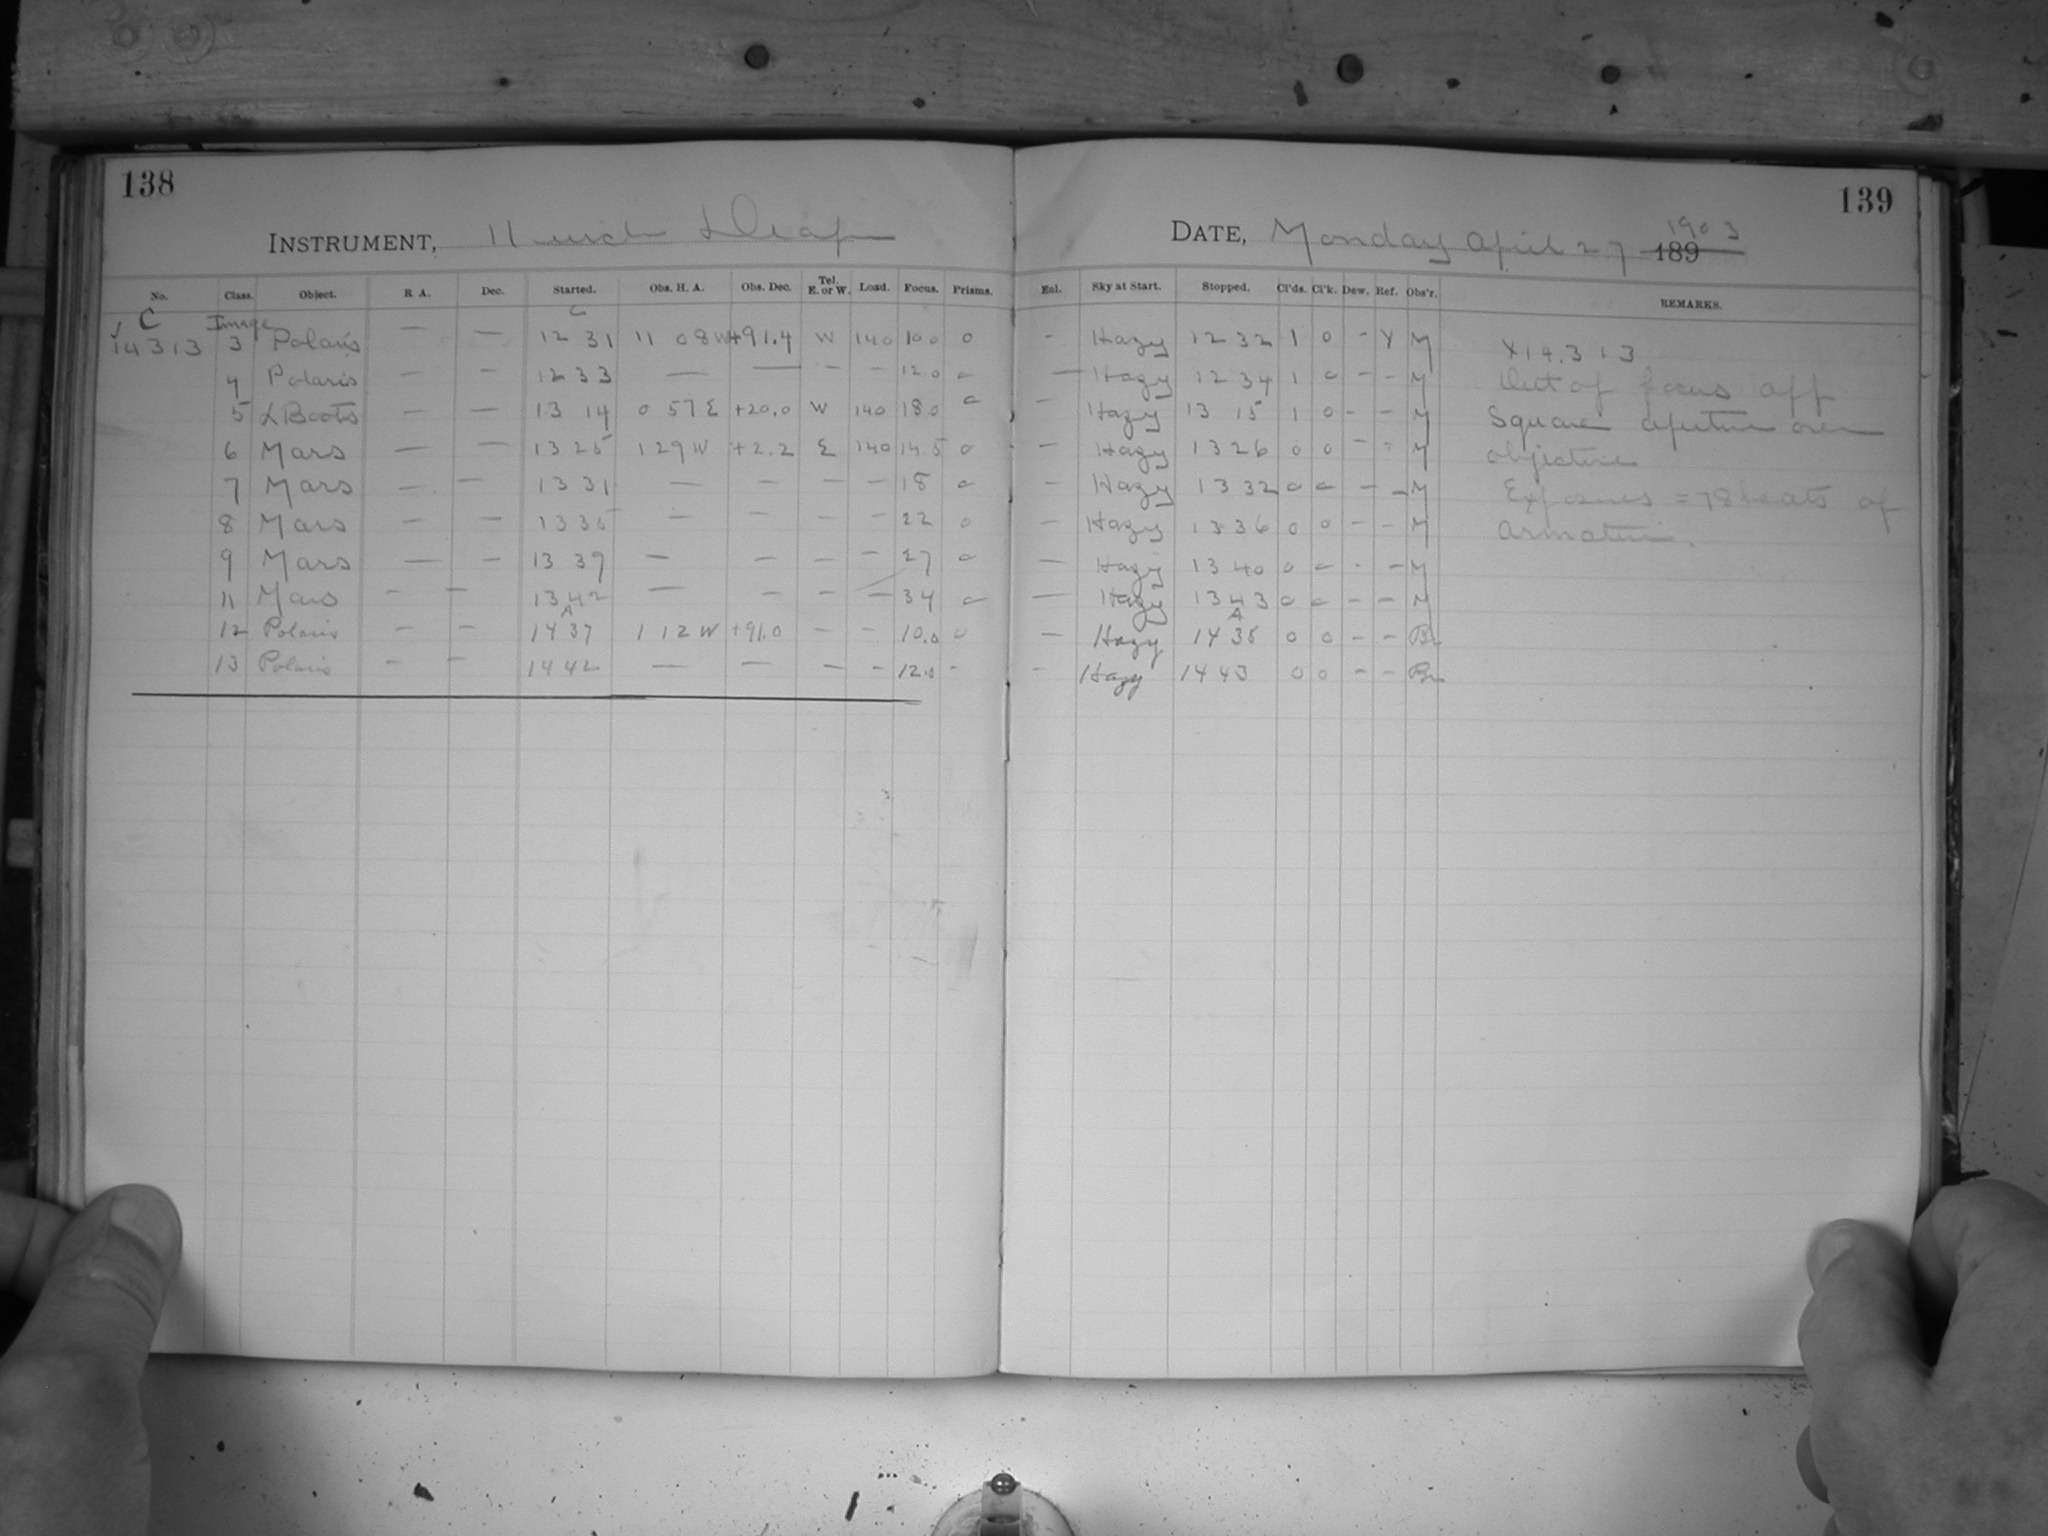 138
INSTRUMENT, 11 inch Draper
No. Class. Object. R A. Dec. Started. Obs. H. A. Obs. Dec. Tel. E. or W. Load. Focus. Prisms.
C Image C
14313 3 Polaris — — 12 31 11 08 W +91.4 W 140 10.0 0
4 Polaris — — 12 33 — — — — 12.0 0
5 α Boots — — 13 14 0 57 E +20.0 W 140 18.0 0
6 Mars — — 13 25 1 29 W +2.2 E 140 14.5 0
7 Mars — — 13 31 — — — — 18 0
8 Mars — — 13 35 — — — — 22 0
9 Mars — — 13 39 — — — — 27 0
11 Mars — — 13 42 — — — — 34 0
A
12 Polaris — — 14 37 1 12 W +91.0 — — 10.0 0
13 Polaris — — 14 42 — — — — 12.0 -
139
DATE, Monday April 27 1903 189
Enl. Sky at Start. Stopped. Cl'ds. Cl'k. Dew. Ref. Obs'r. REMARKS.
- Hazy 12 32 1 0 - Y M X14313
— Hazy 12 34 1 0 - - M Out of focus app
— Hazy 13 15 1 0 - - M Square aperture over
— Hazy 13 26 0 0 - - M objective
— Hazy 13 32 0 0 - - M Exposures = 78 beats of
— Hazy 13 36 0 0 - - M armature.
— Hazy 13 40 0 0 - - M
— Hazy 13 43 0 0 - - M
A
— Hazy 14 38 0 0 - - Br
- Hazy 14 43 0 0 - - Br